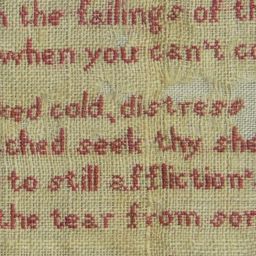 n the failings of th
when you can't co
ked cold, distress
ched seek thy she
to still affliction'
the tear from sor